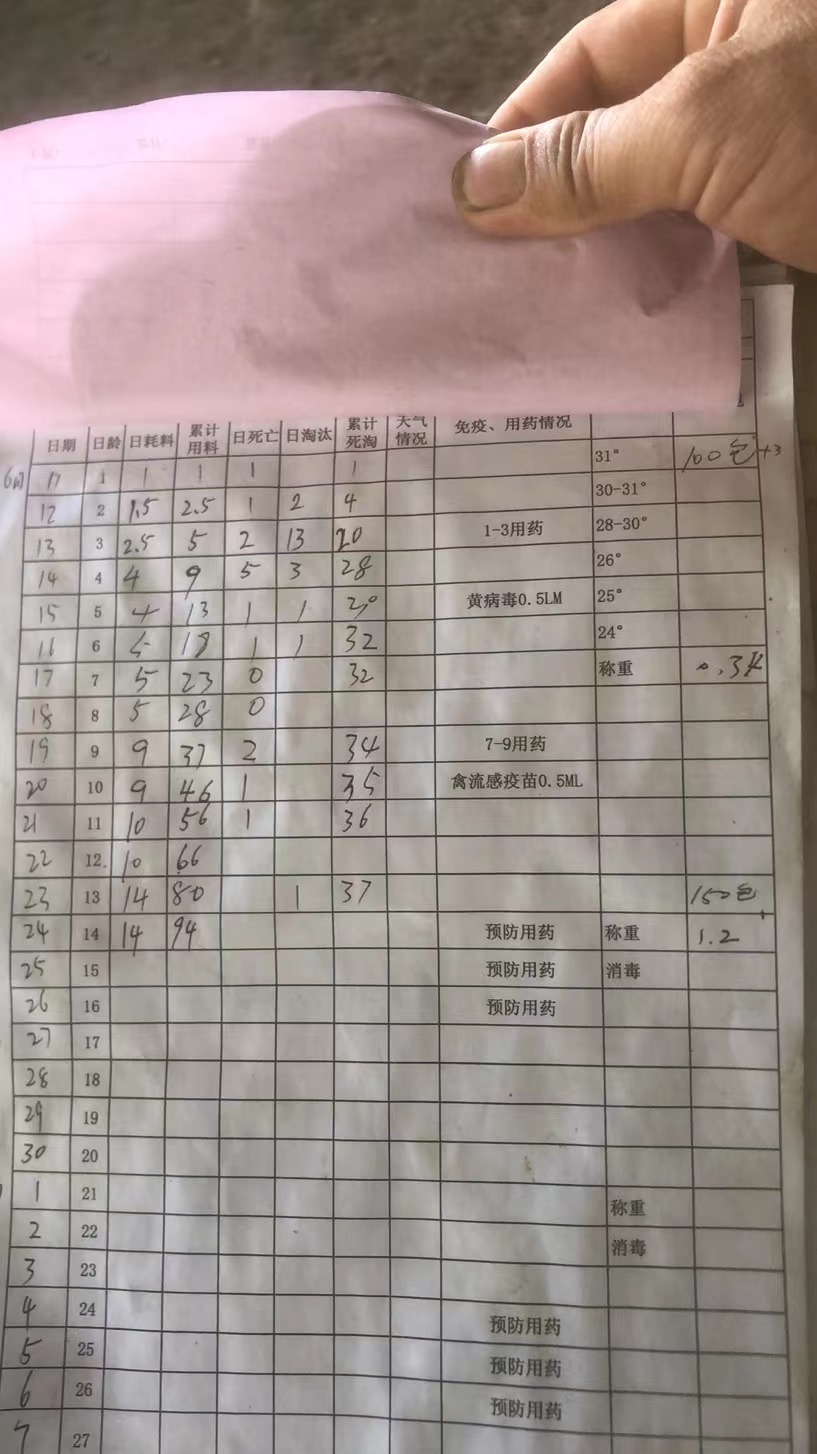 日期 日龄 日耗料 累计用料 日死亡 日淘汰 累计死淘 天气情况 免疫、用药情况
6月 11 1 1 1 1 1 31° 100包+3
12 2 1.5 2.5 1 2 4 30-31°
13 3 2.5 5 2 13 20 1-3用药 28-30°
14 4 4 9 5 3 28 26°
15 5 4 13 1 1 黄病毒0.5LM 25°
16 6 5 18 1 1 32 24°
17 7 5 23 0 32 称重
18 8 5 28 0
19 9 9 37 2 34 7-9用药
20 10 9 46 1 35 禽流感疫苗0.5ML
21 11 10 56 1 36
22 12 10 66
23 13 14 80 1 37 150包
24 14 14 94 预防用药 称重 1.2
25 15 预防用药 消毒
26 16 预防用药
27 17
28 18
29 19
30 20
1 21 称重
2 22 消毒
3 23
4 24 预防用药
5 25 预防用药
6 26 预防用药
7 27